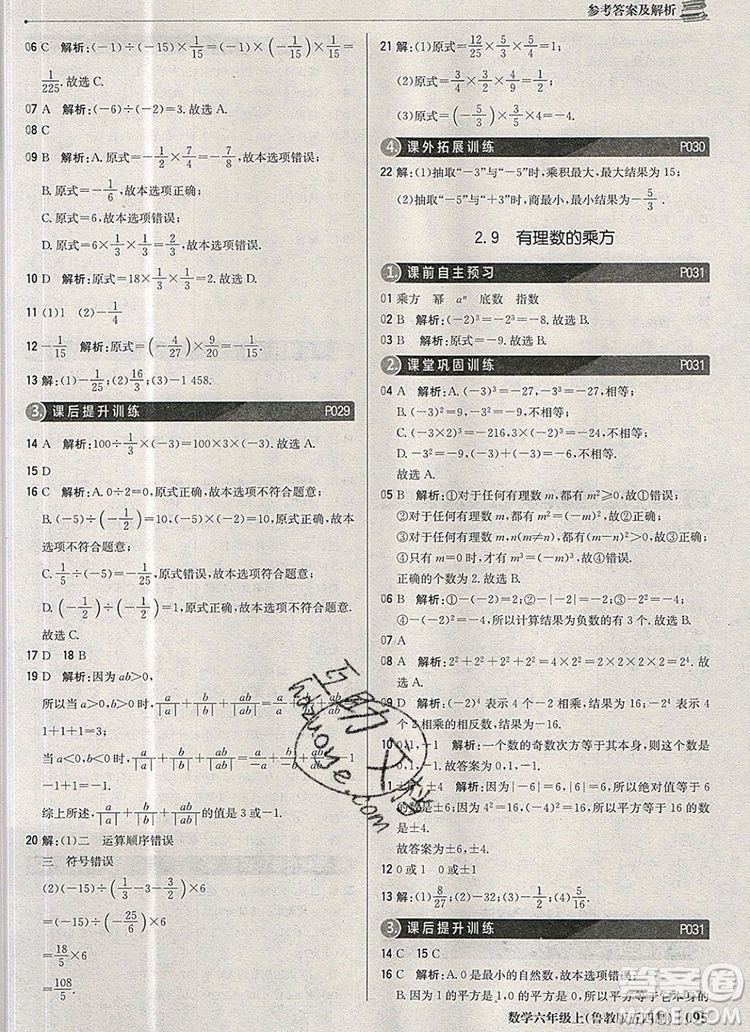 参考答案及解析
06 C 解析:(-1)÷(-15)×1/15=(-1)×(-1/15)×1/15
=1/225.故选 C.
07 A 解析:(-6)÷(-2)=3.故选 A.
08 C
09 B 解析:A.原式=-1/2×3/2×7/4,故本选项错误;
B.原式=-1/2,故本选项正确;
C.原式=6,故本选项错误;
D.原式=1/3×1/3×1/3,故本选项错误.
10 D 解析:原式=18×1/3×1/3=2.故选 D.
11 (1)1 (2)-1/4
12 -1/15 解析:原式=(-4/27)×9/20=-1/15.
13 解:(1)-2/15;(2)16/3;(3)-1 458.
3. 课后提升训练 P029
14 A 解析:100÷1/3×(-3)=100×3×(-3).故选 A.
15 D
16 C 解析:A.0÷2=0,原式正确,故本选项不符合题意;
B.(-5)÷(-1/2)=(-5)×(-2),原式正确,故本选项不
符合题意;
C.1/5÷(-5)=-1/25,原式错误,故本选项符合题意;
D.(-1/2)÷(-1/2)=1,原式正确,故本选项不符合题意.
故选 C.
17 D 18 B
19 D 解析:因为 ab>0,
所以当 a>0,b>0 时,a/|a|+b/|b|+ab/|ab|=a/a+b/b+ab/ab=
1+1+1=3;
当 a<0,b<0 时,a/|a|+b/|b|+ab/|ab|=-1-1+1=-1.
综上所述,a/|a|+b/|b|+ab/|ab|的值是 3 或-1.
20 解:(1)二 运算顺序错误
三 符号错误
(2)(-15)÷(1/3-3-3/2)×6
=(-15)÷(-25/6)×6
=18/5×6
=108/5.
21 解:(1)原式=2/3×9/5×1/6=1/5;
(2)原式=3/4×4/3×(-5/3)=-5/3;
(3)原式=(-5/3)×3/5×4=-4.
4. 课外拓展训练 P030
22 解:(1)抽取“-3”与“-5”时,乘积最大,最大结果为 15;
(2)抽取“-5”与“+3”时,商最小,最小结果为-5/3.
2.9 有理数的乘方
1. 课前自主预习 P031
01 乘方 幂 aⁿ 底数 指数
02 B 解析:(-2)³=-2³=-8.故选 B.
03 B 解析:-3²=-9.故选 B.
2. 课堂巩固训练 P031
04 A 解析:A.(-3)³=-3³=-27,相等;
B.(-3)²=9,-3²=-9,不相等;
C.(-3×2)³=-216,3×(-2)³=-24,不相等;
D.-3²=-9,-2³=-8,不相等.
故选 A.
05 B 解析:①对于任何有理数 m,m²≥0,故①错误;
②对于任何有理数 m,m²=(-m)²,故②正确;
③对于任何有理数 m,n(m≠n),(m-n)²>0,故③正确;
④只有当 m=0 时,m³=(-m)³,故④错误.
正确的个数为 2.故选 B.
06 B 解析:①-(-2)=2;②-|-2|=-2;③-2²=-4;
④-(-2)²=-4,所以计算结果为负数的有 3 个.故选 B.
07 A
08 A 解析:2²+2²+2²+2²=4×2²=2⁴.故选 A.
09 D 解析:(-2)⁴ 表示 4 个-2 相乘,结果为 16,-2⁴ 表示
4 个 2 相乘的相反数,结果为-16.
10 0,1,-1 解析:一个数的奇数次方等于它本身,则这个数
为 0,1,-1.故答案为 0,1,-1.
11 ±6 ±4 解析:因为|-6|=|6|=6,所以绝对值等于 6
的有理数是±6;因为(±4)²=16,所以平方等于 16 的有理
数是±4.
故答案为±6,±4.
12 0或1 0
13 解:(1)8/27;(2)-32;(3)-1/2;(4)0.
3. 课后提升训练 P031
14 C 15 C
16 C 解析:A.0 是最小的自然数,故本选项正确,不符合
数学六年级上(鲁教版五四制) 095
互助文档
hdzuoye.com
答案圈